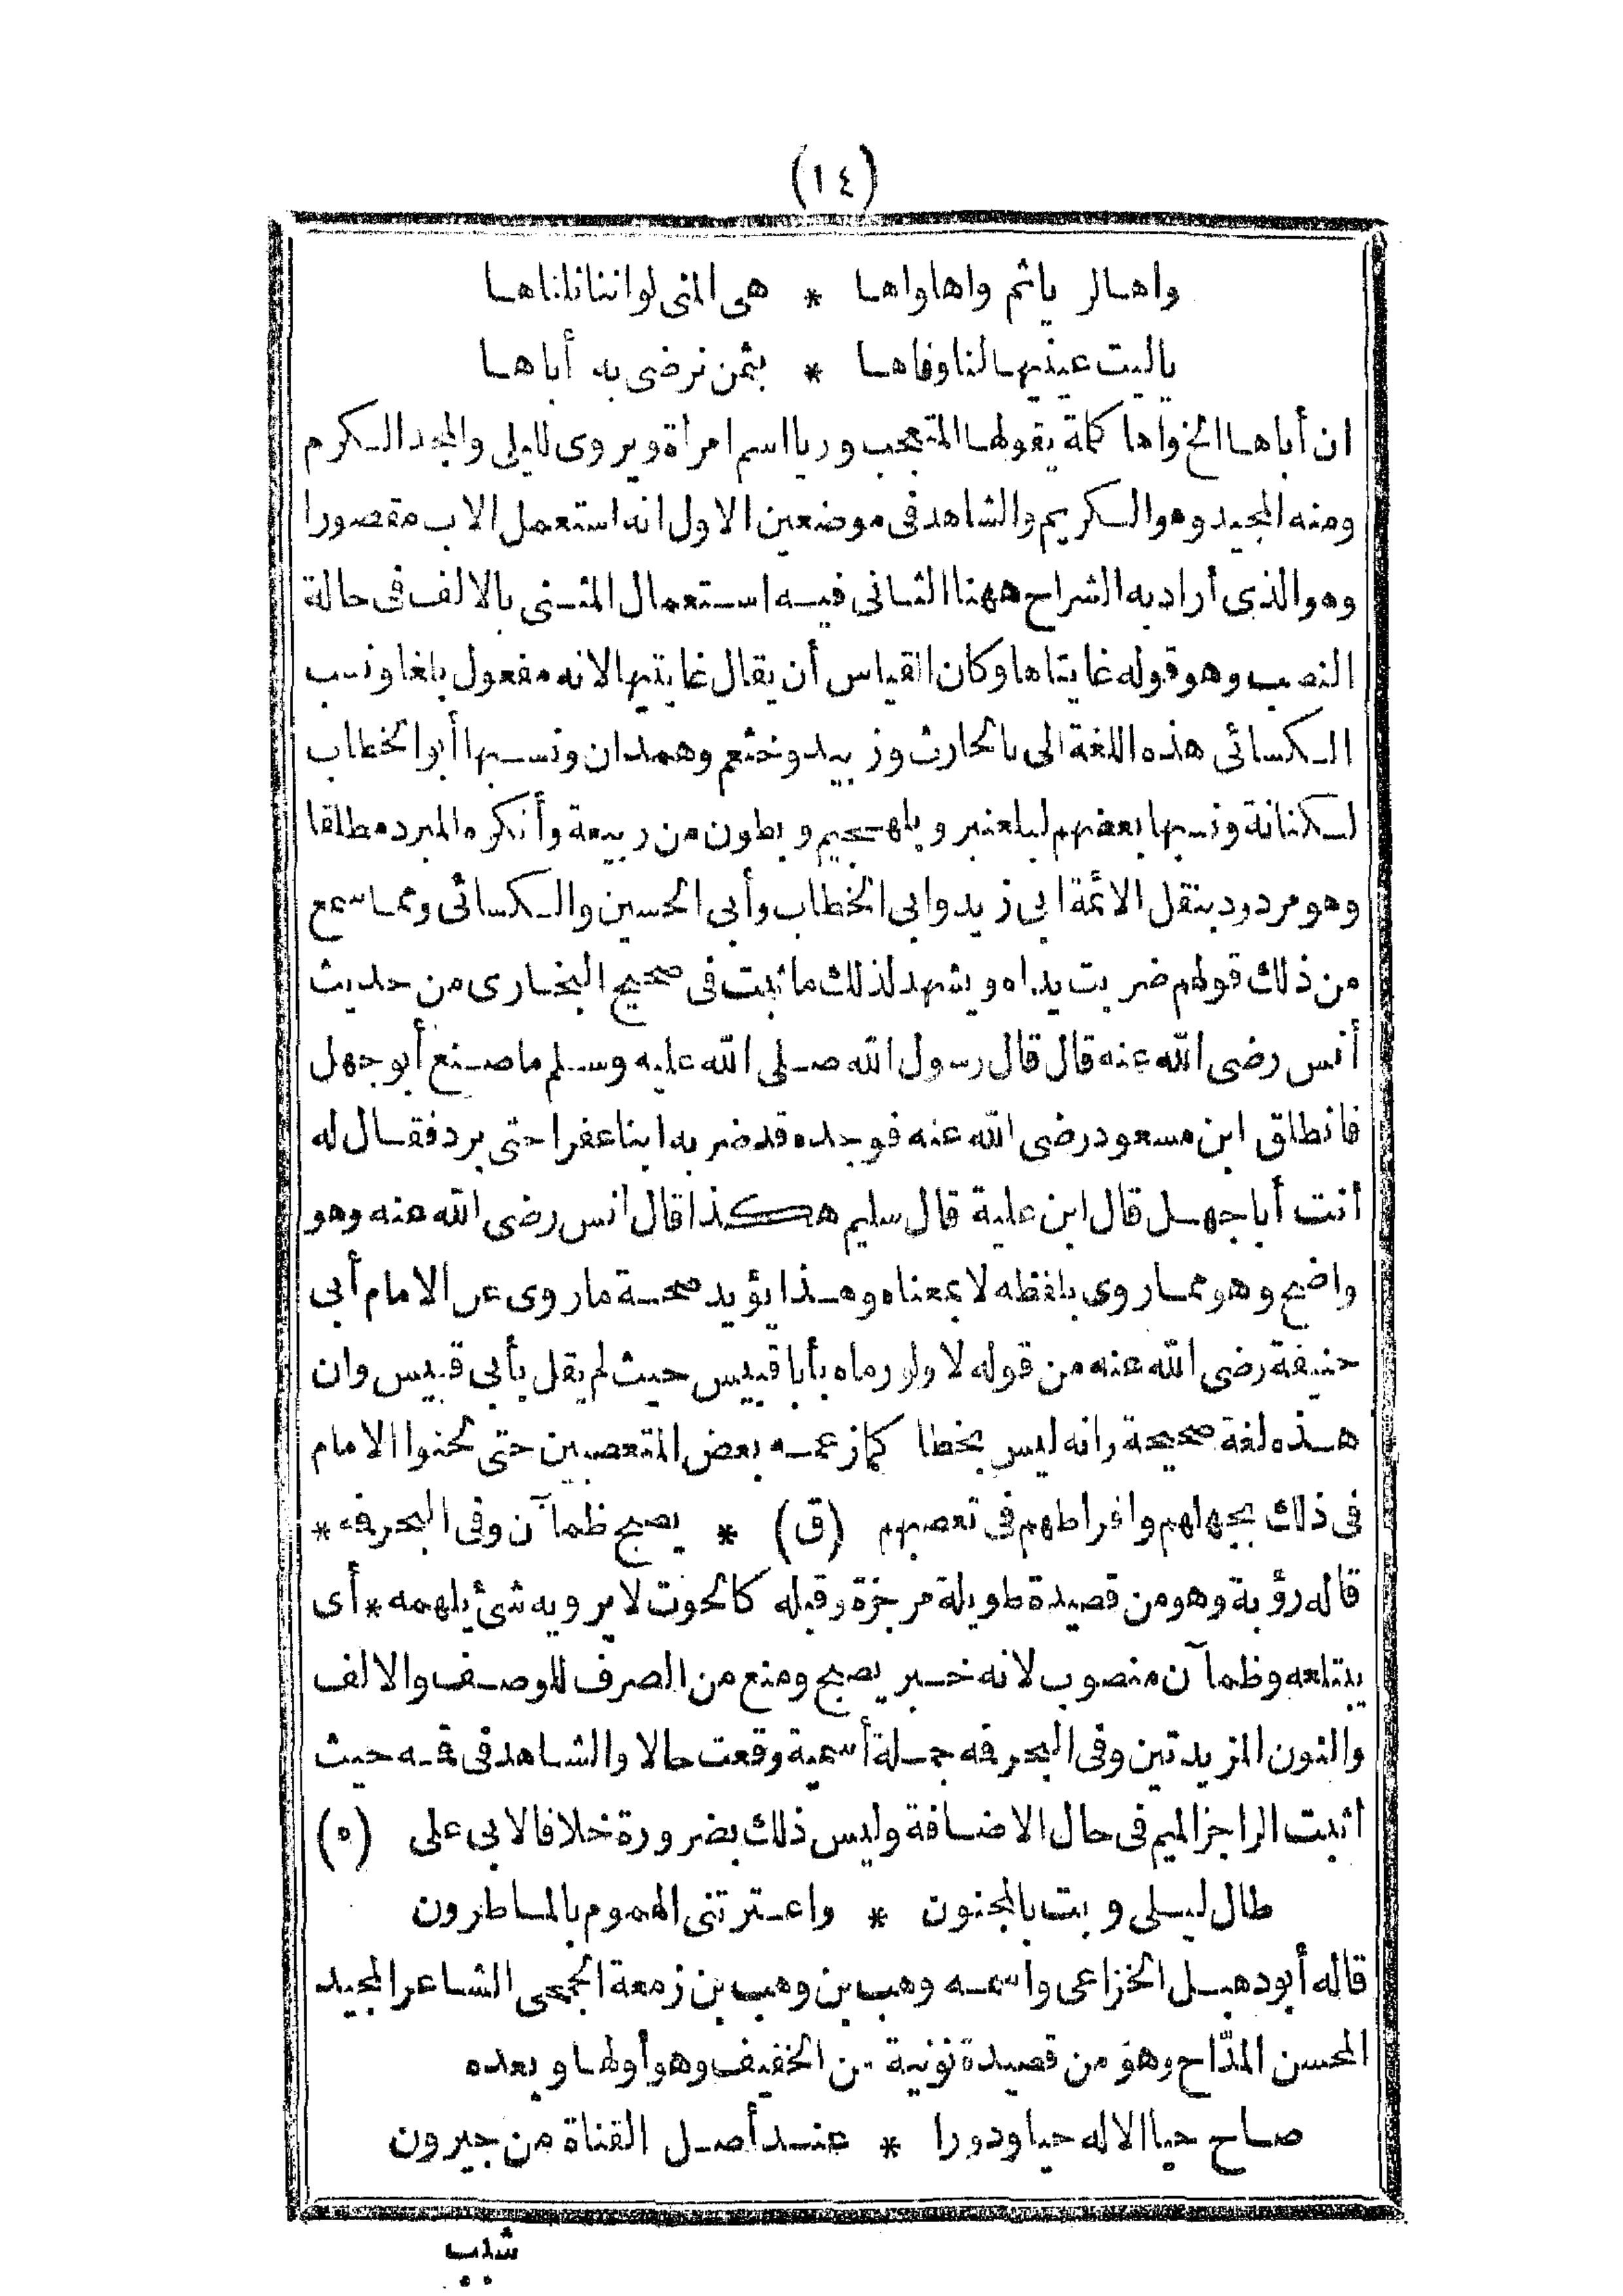 (١٤)
واهالر ياثم واها واها * هى المنى لو اننا نلناها
ياليت عينيها لنا وفاها * بثمن نرضى به أباها
ان أباها الخ واها كلمة يقولها المتعجب وريا اسم امرأة ويروى لليلى والمجد الكرم
ومنه المجيد وهو الكريم والشاهد فى موضعين الاول انه استعمل الاب مقصورا
وهو الذى أراد به الشراح ههنا الثانى فيه استعمال المثنى بالالف فى حالة
النصب وهو قوله غايتاها وكان القياس أن يقال غايتيها لانه مفعول بلغا ونسب
الكسائى هذه اللغة الى بالحارث وزبيد وخثعم وهمدان ونسبها أبو الخطاب
لكنانة ونسبها بعضهم لبلعنبر وبلهجيم وبطون من ربيعة وأنكره المبرد مطلقا
وهو مردود بنقل الائمة ابى زيد وابى الخطاب وأبى الحسين والكسائى ومما سمع
من ذلك قولهم ضربت يداه ويشهد لذلك ماثبت فى صحيح البخارى من حديث
أنس رضى الله عنه قال قال رسول الله صلى الله عليه وسلم ما صنع أبو جهل
فانطلق ابن مسعود رضى الله عنه فوجده قد ضربه ابنا عفرا حتى برد فقال له
أنت أبا جهل قال ابن علية قال سليم هكذا قال انس رضى الله عنه وهو
واضح وهو مما روى بلفظه لا بمعناه وهذا يؤيد صحة ماروى عن الامام أبى
حنيفة رضى الله عنه من قوله لا ولو رماه بأبا قبيس حيث لم يقل بأبى قبيس وان
هذه لغة صحيحة وانه ليس بخطا كما زعمه بعض المتعصبين حتى لحنوا الامام
فى ذلك بجهلهم وافراطهم فى تعصبهم (ق) * يصبح ظمآن وفى البحر فه *
قاله رؤبة وهو من قصيدة طويلة مرجزة وقبله كالحوت لا يرويه شئ يلهمه * أى
يبتلعه وظمآن منصوب لانه خبر يصبح ومنع من الصرف للوصف والالف
والنون المزيدتين وفى البحر فه جملة أسمية وقعت حالا والشاهد فى فمه حيث
اثبت الراجز الميم فى حال الاضافة وليس ذلك بضرورة خلافا لابى على (ه)
طال ليلى وبت بالمجنون * واعترتنى الهموم بالماطرون
قاله أبو دهبل الخزاعى واسمه وهب بن وهب بن زمعة الجمحى الشاعر المجيد
المحسن المدّاح وهو من قصيدة نونية من الخفيف وهو أولها وبعده
صاح حيا الاله حيا ودورا * عند أصل القناة من جيرون